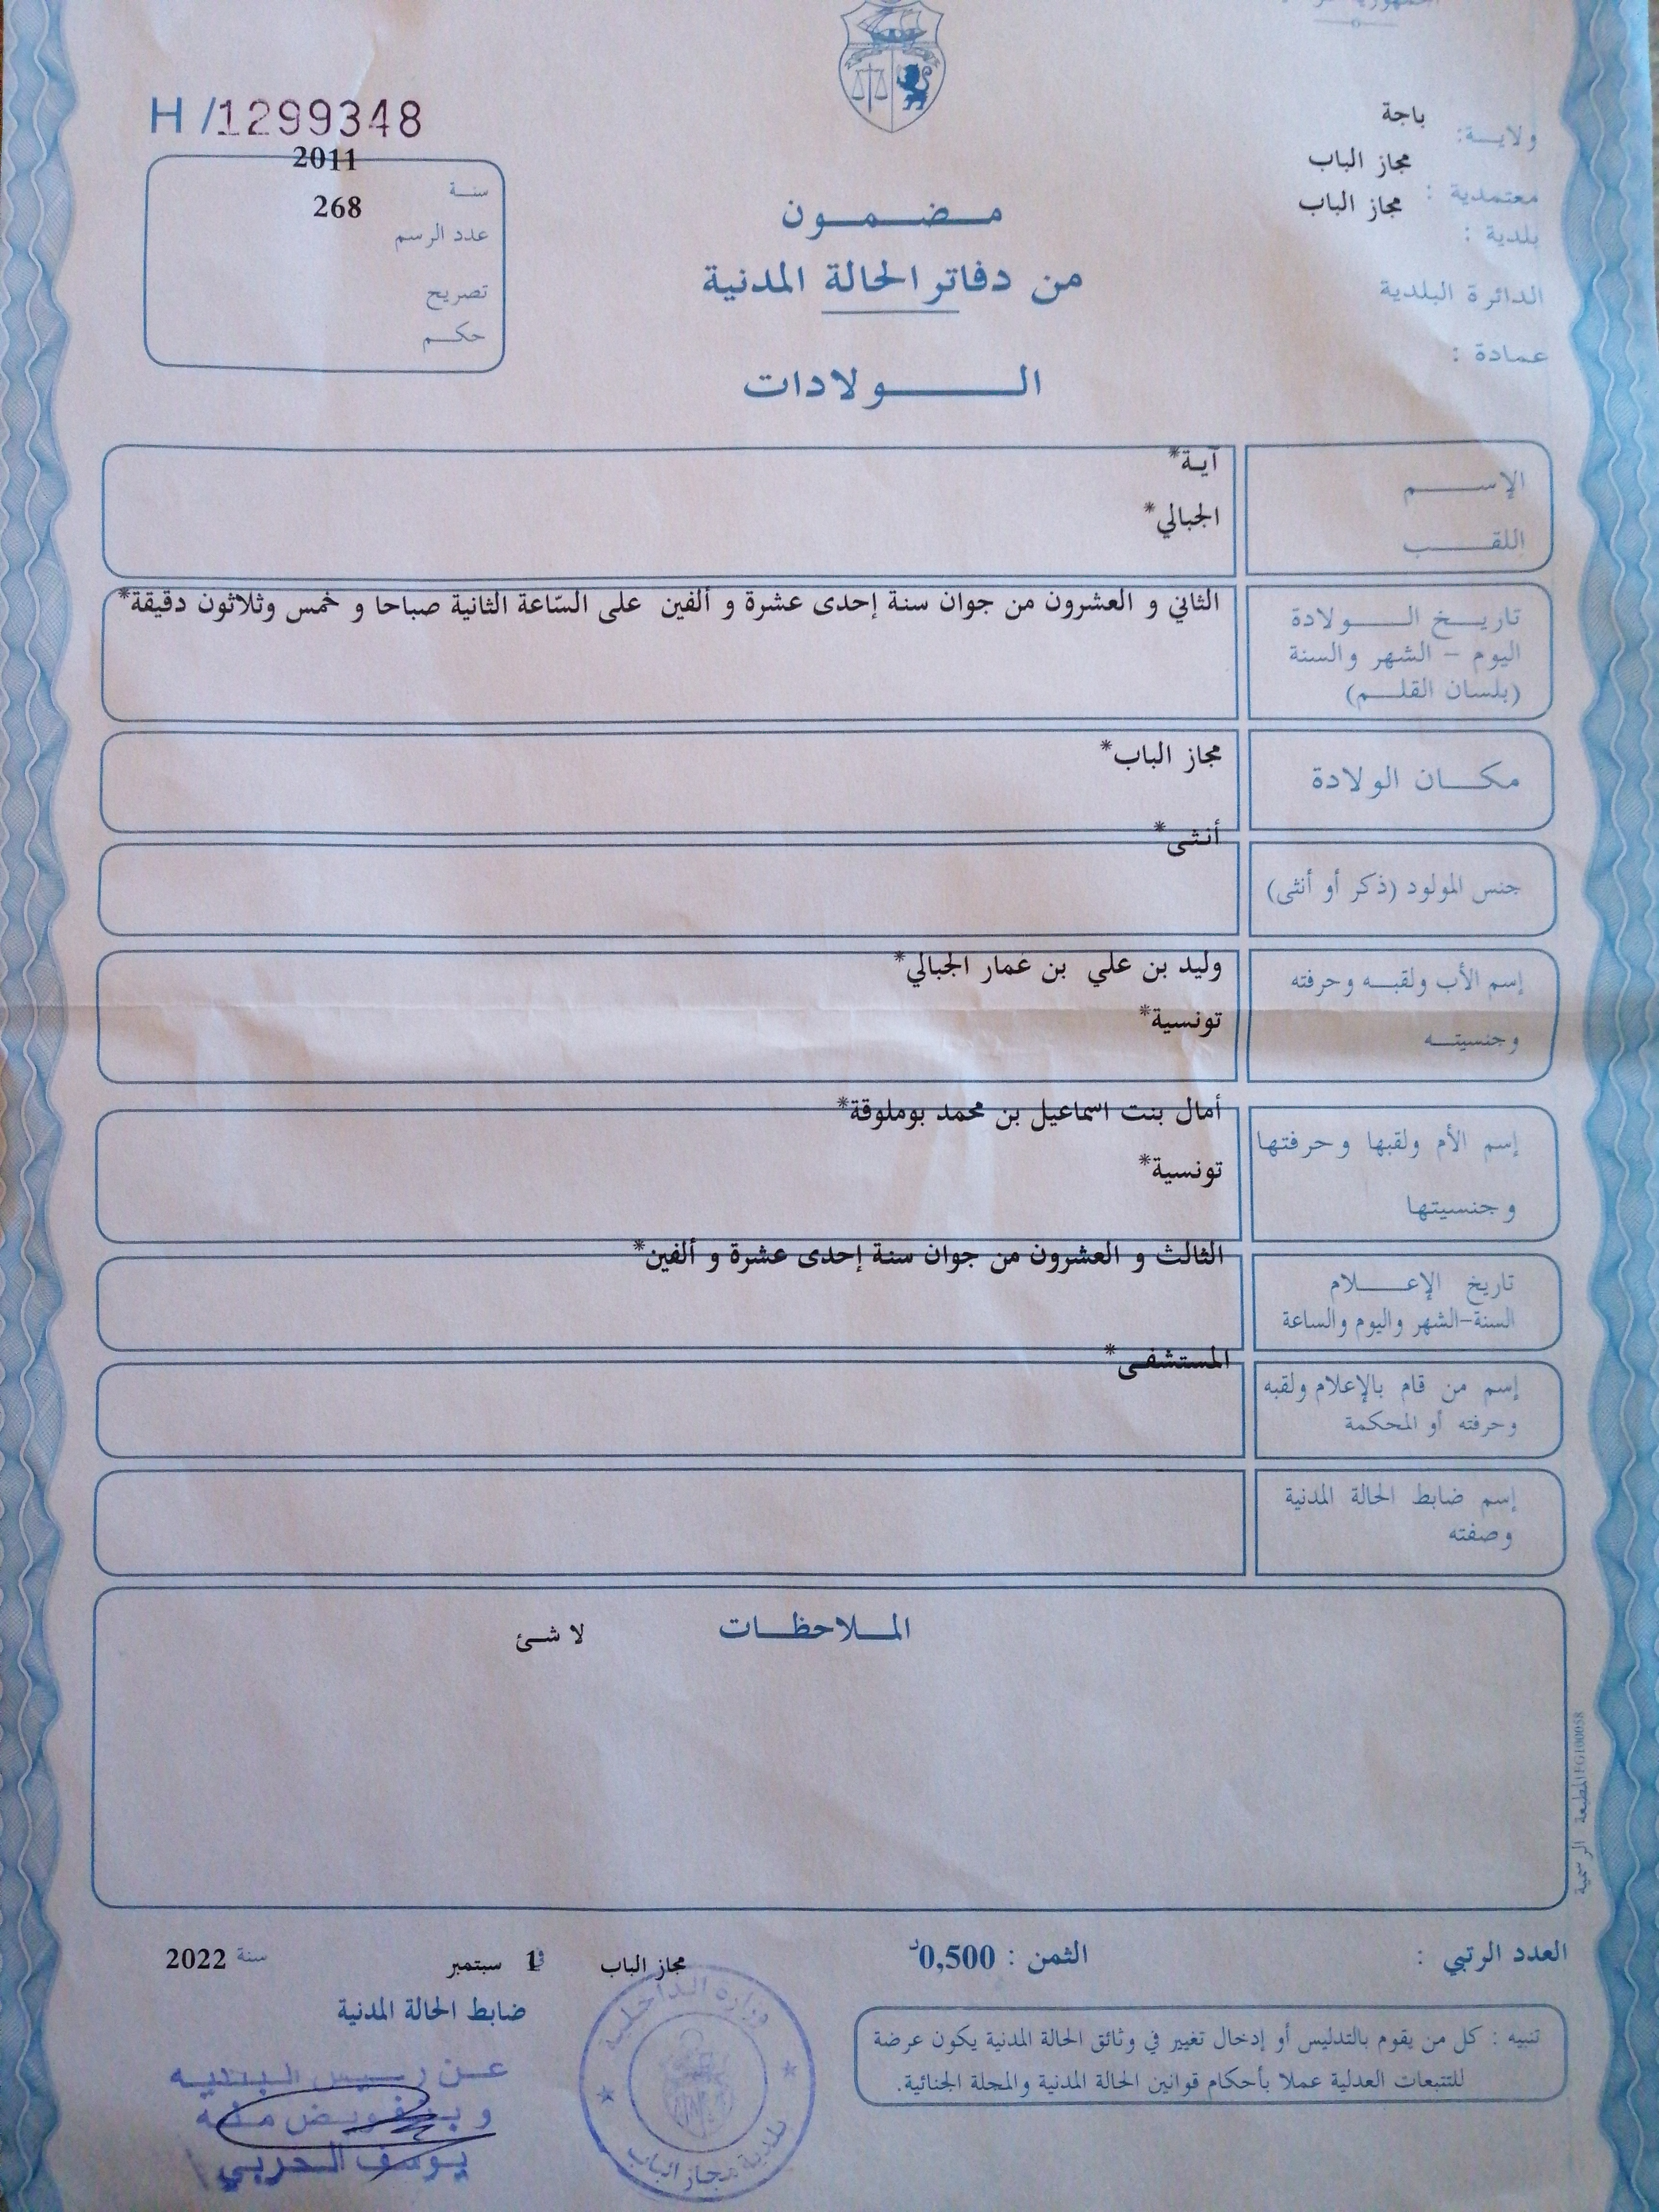 H/1299348
ولايـــة: باجة
معتمدية : مجاز الباب
بلدية : مجاز الباب
الدائرة البلدية
عمادة :
سنـــة 2011
عدد الرسم 268
تصريح
حكـــم
مـــضـــمـــون
من دفاتر الحالة المدنية
الـــــولادات
الإســـــم آية*
اللقـــــب الجبالي*
تاريـــخ الـــــولادة
اليوم - الشهر والسنة
(بلسان القلـــم)
الثاني و العشرون من جوان سنة إحدى عشرة و ألفين على السّاعة الثانية صباحا و خمس وثلاثون دقيقة*
مكـــان الولادة مجاز الباب*
جنس المولود (ذكر أو أنثى) أنثى*
إسم الأب ولقبـــه وحرفته وليد بن علي بن عمار الجبالي*
وجنسيتـــه تونسية*
إسم الأم ولقبها وحرفتها أمال بنت اسماعيل بن محمد بوملوقة*
وجنسيتها تونسية*
تاريخ الإعـــــلام
السنة-الشهر واليوم والساعة
الثالث و العشرون من جوان سنة إحدى عشرة و ألفين*
إسم من قام بالإعلام ولقبه
وحرفته أو المحكمة
المستشفى*
إسم ضابط الحالة المدنية
وصفته
المـــلاحظـــات
لا شئ
المطبعة الرسمية
العدد الرتبي :
الثمن : 0,500د
مجاز الباب في 1 سبتمبر سنة 2022
ضابط الحالة المدنية
تنبيه : كل من يقوم بالتدليس أو إدخال تغيير في وثائق الحالة المدنية يكون عرضة
للتتبعات العدلية عملا بأحكام قوانين الحالة المدنية والمجلة الجنائية.
وزارة الداخلية
بلدية مجاز الباب
عن رئيس البلدية
وبتفويض منه
يوسف الحربي